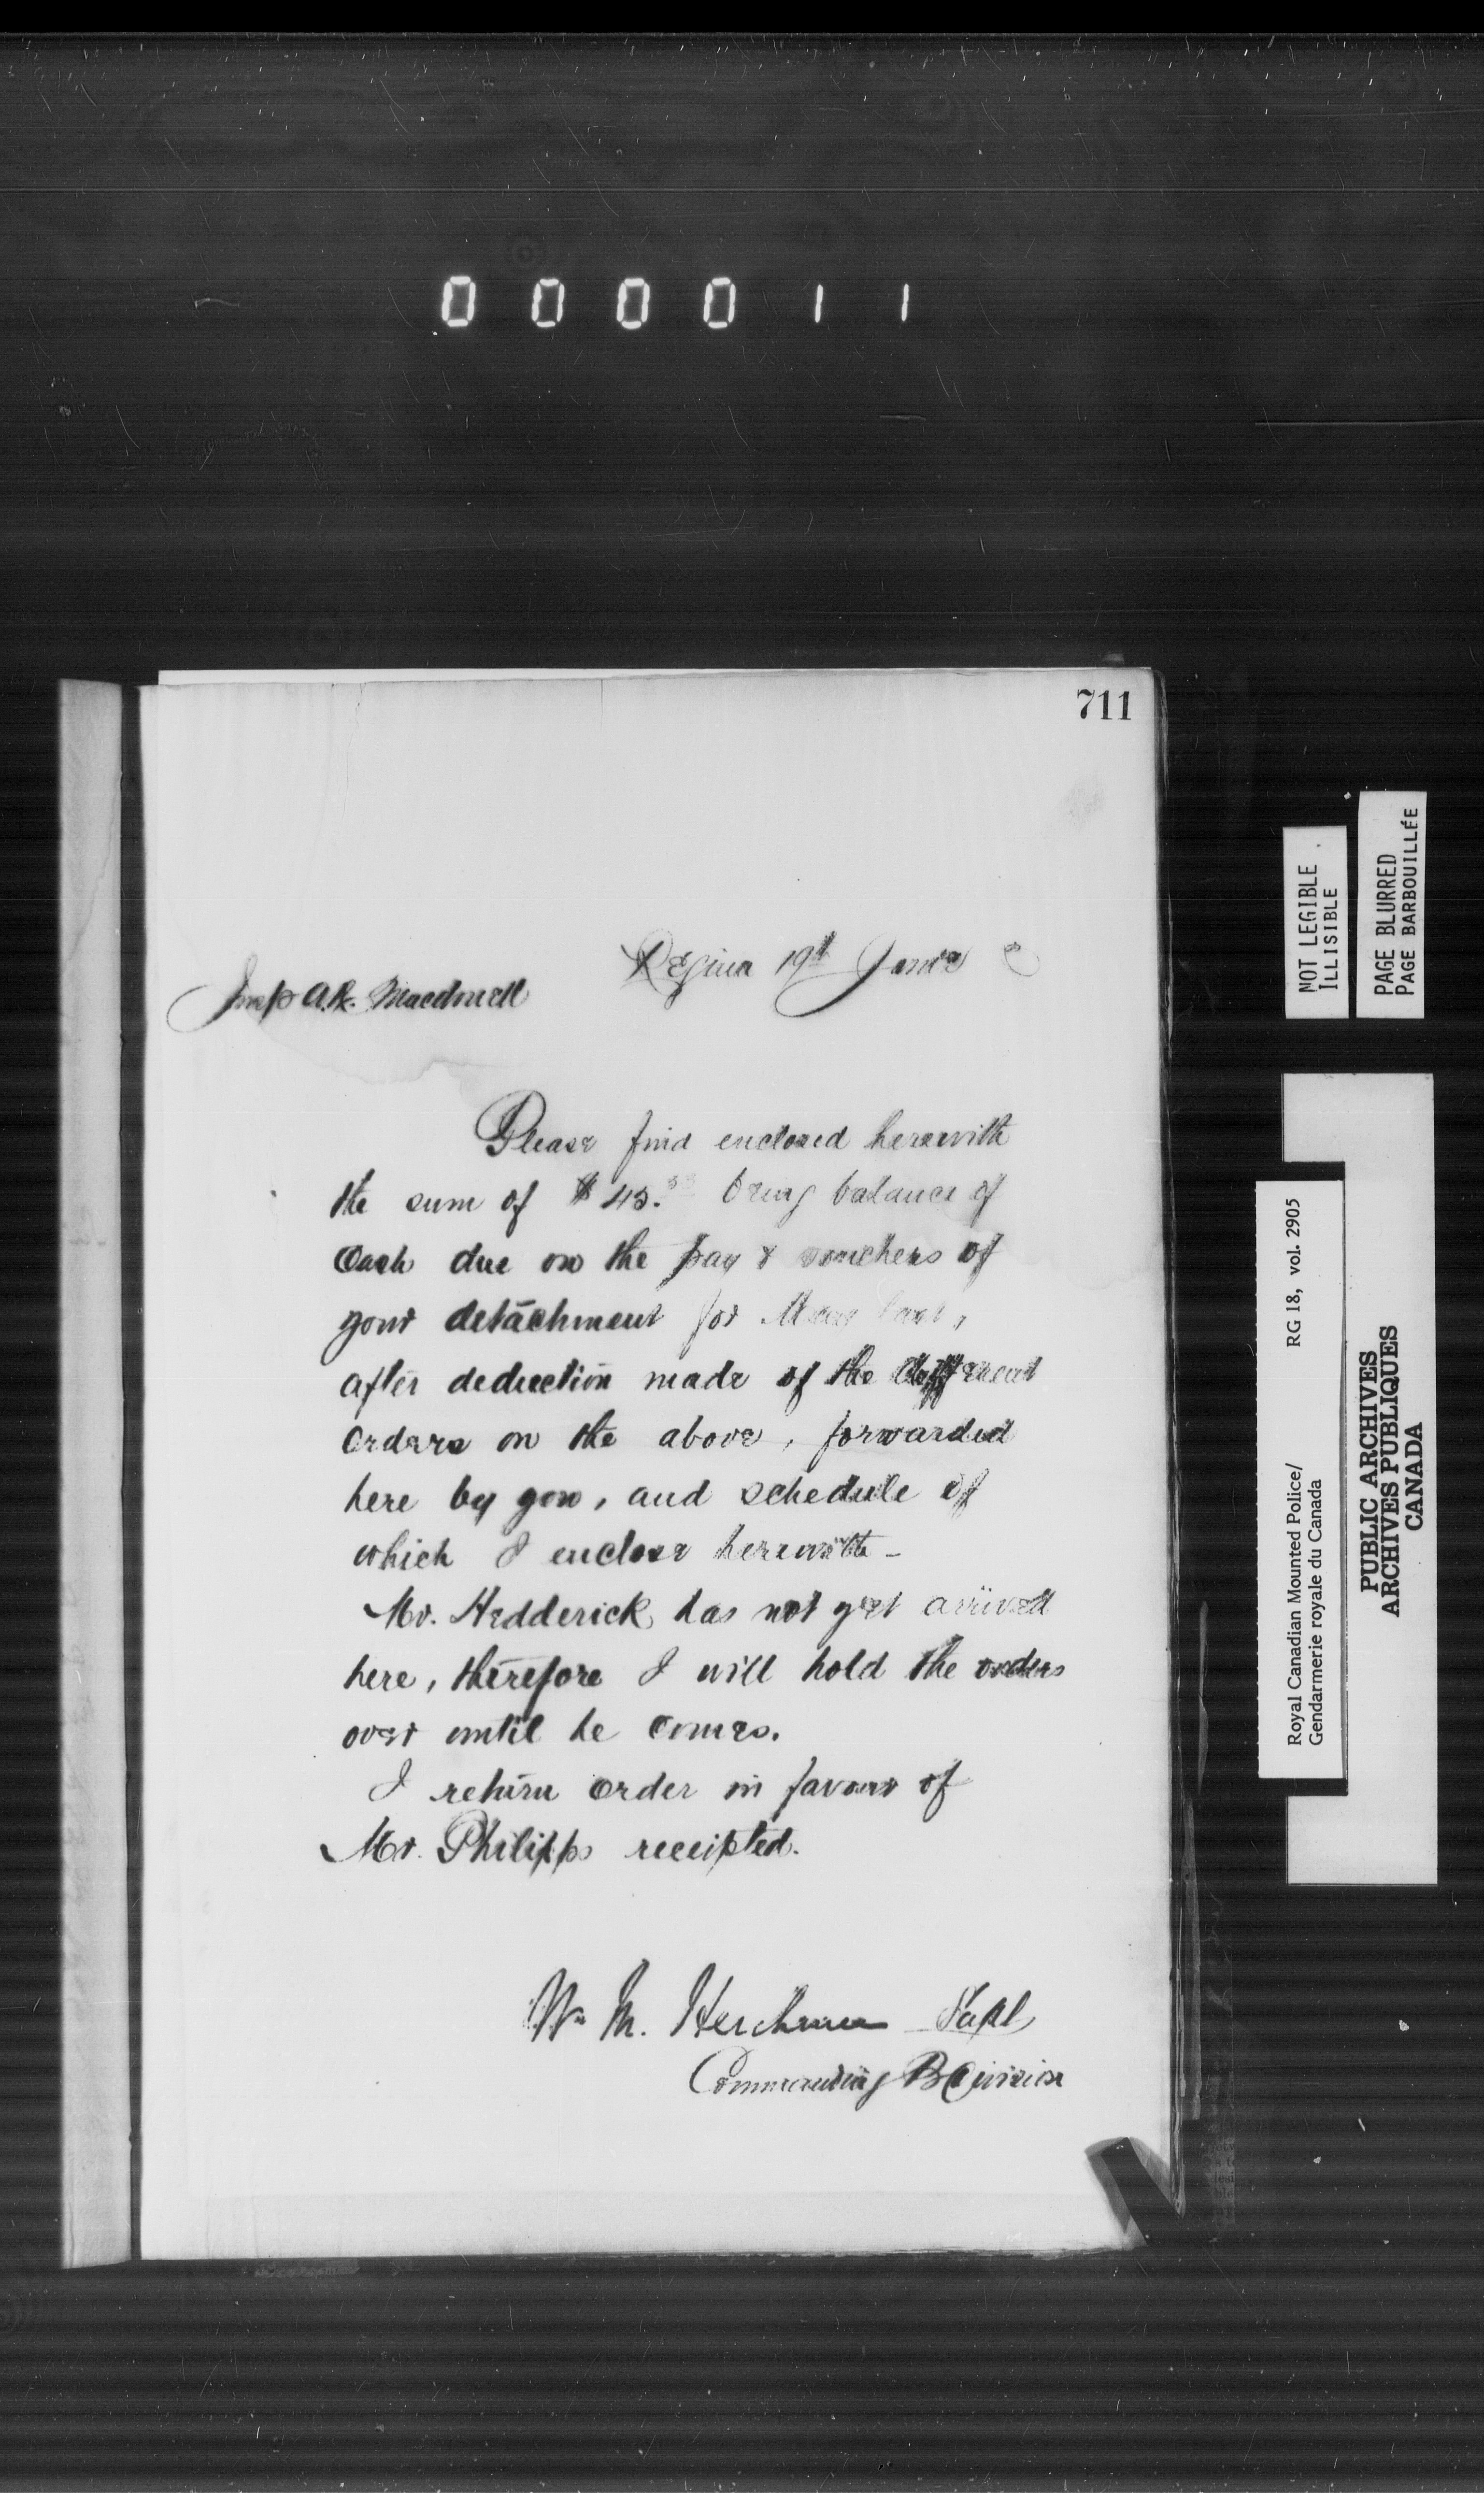 000011
711
Regina 19th June
Insp A.R. Macdonell
Please find enclosed herewith
the sum of $ 43. being balance of
Cash due on the pay & vouchers of
your detachment for May last,
after deduction made of the different
orders on the above, forwarded
here by you, and schedule of
which I enclose herewith -
Mr. Hedderick has not yet arrived
here, therefore I will hold the orders
over until he comes.
I return order in favour of
Mr. Philipps receipted.
Wm M. Herchmer Supt
Commanding B Division
NOT LEGIBLE
ILLISIBLE
PAGE BLURRED
PAGE BARBOUILLÉE
Royal Canadian Mounted Police/ RG 18, vol. 2905
Gendarmerie royale du Canada
PUBLIC ARCHIVES
ARCHIVES PUBLIQUES
CANADA